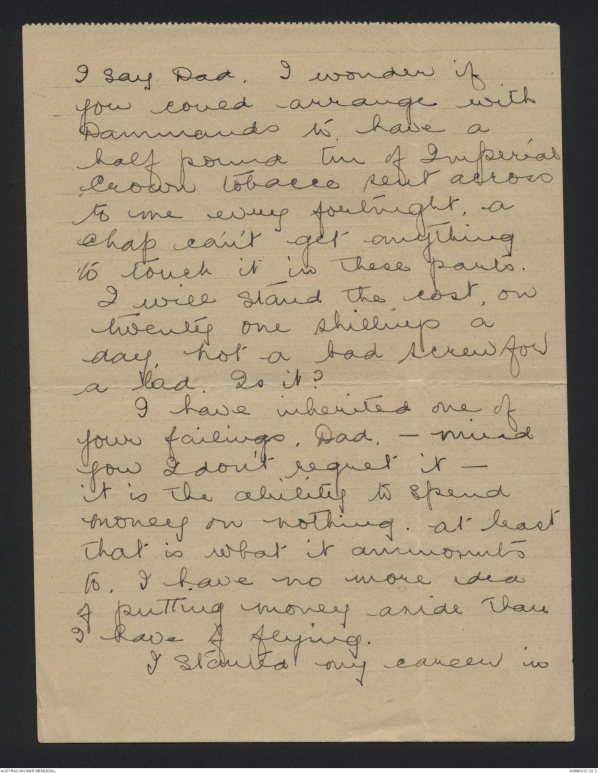 I say Dad. I wonder if
you could arrange with
Dammands to have a
half pound tin of Imperial
Crown tobacco sent across
to me every fortnight, a
chap can't get anything
to touch it in these parts.
I will stand the cost, on
twenty one shillings a
day, not a bad screw for
a lad. Is it?
I have inherited one of
your failings, Dad, – mind
you I don't regret it –
it is the ability to spend
money on nothing. at least
that is what it ammounts
to. I have no more idea
of putting money aside than
I have of flying.
I started my career in
AUSTRALIAN WAR MEMORIAL